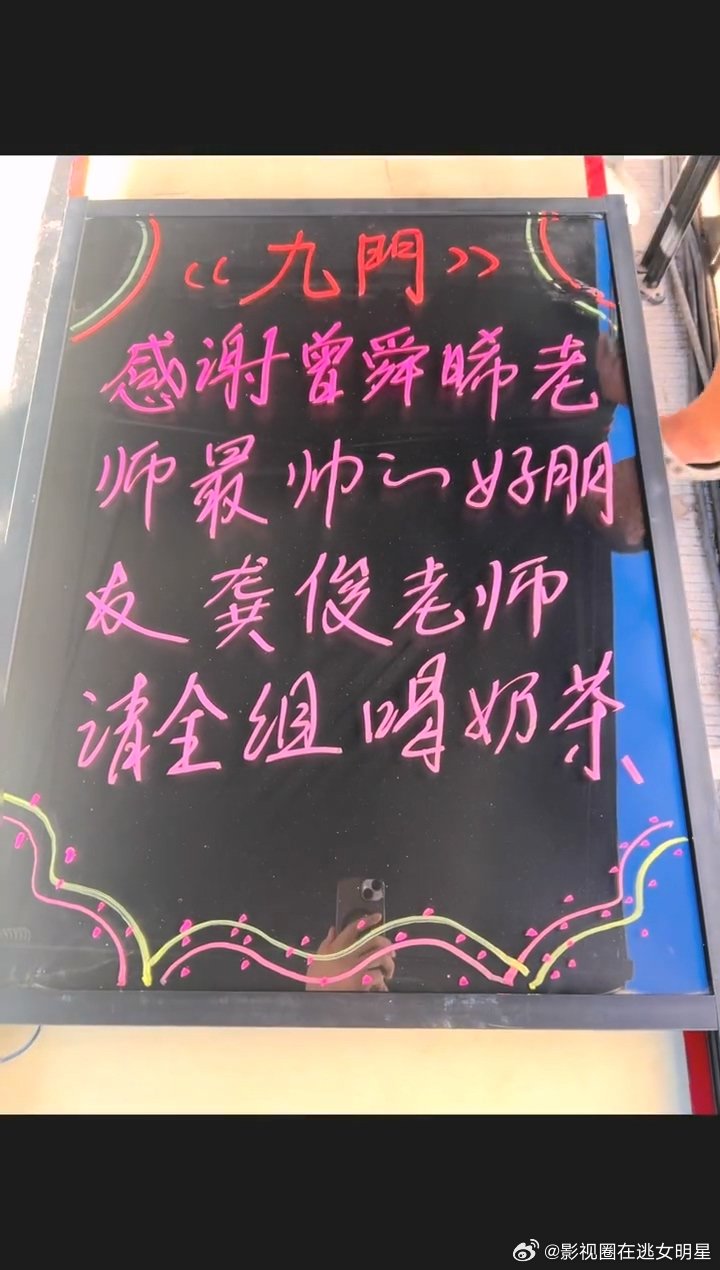 《九門》
感谢曾舜晞老
师最帅的好朋
友龚俊老师
请全组喝奶茶
@影视圈在逃女明星